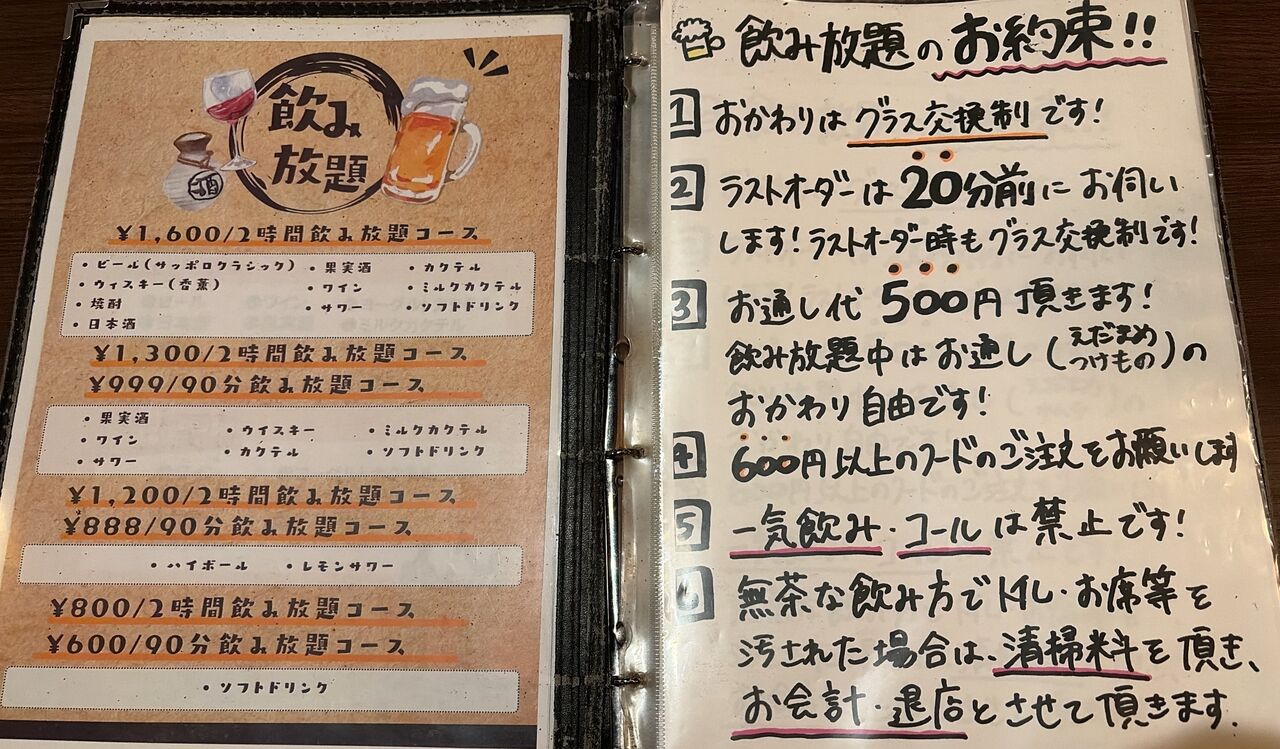 飲み
放題
酒
¥1,600/2時間飲み放題コース
・ビール(サッポロクラシック) ・果実酒 ・カクテル
・ウィスキー(香薫) ・ワイン ・ミルクカクテル
・焼酎 ・サワー ・ソフトドリンク
・日本酒
¥1,300/2時間飲み放題コース
¥999/90分飲み放題コース
・果実酒 ・ウイスキー ・ミルクカクテル
・ワイン ・カクテル ・ソフトドリンク
・サワー
¥1,200/2時間飲み放題コース
¥888/90分飲み放題コース
・ハイボール ・レモンサワー
¥800/2時間飲み放題コース
¥600/90分飲み放題コース
・ソフトドリンク
飲み放題のお約束!!
1 おかわりはグラス交換制です!
2 ラストオーダーは20分前にお伺い
します!ラストオーダー時もグラス交換制です!
3 お通し代 500円頂きます!
飲み放題中はお通し(えだまめ つけもの)の
おかわり自由です!
4 600円以上のフードのご注文をお願いします
5 一気飲み・コールは禁止です!
6 無茶な飲み方でトイレ・お席等を
汚された場合は、清掃料を頂き、
お会計・退店とさせて頂きます.